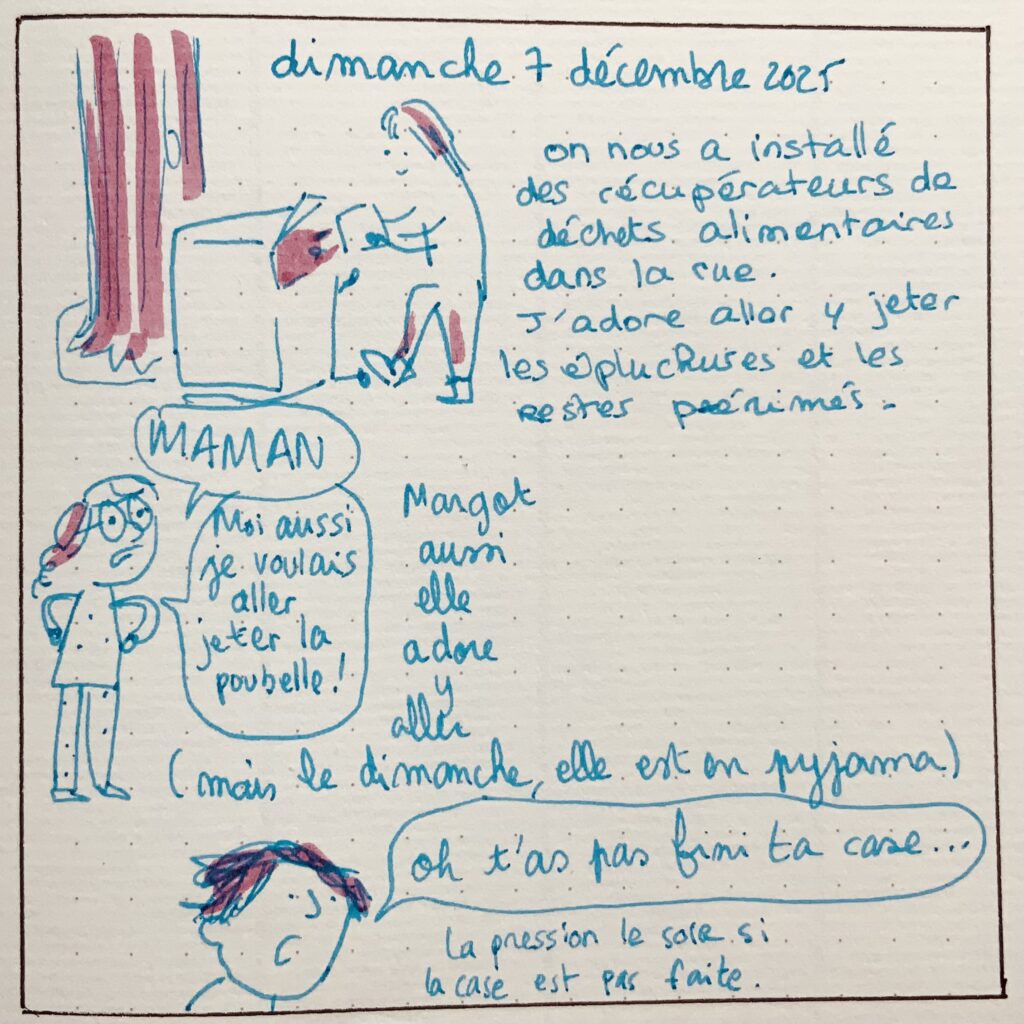 dimanche 7 décembre 2025
on nous a installé
des récupérateurs de
déchets alimentaires
dans la rue.
J'adore aller y jeter
les épluchures et les
restes périmés.
MAMAN
Moi aussi
je voulais
aller
jeter la
poubelle !
Margot
aussi
elle
adore
y
aller
(mais le dimanche, elle est en pyjama)
oh t'as pas fini ta case...
La pression le soir si
la case est pas faite.